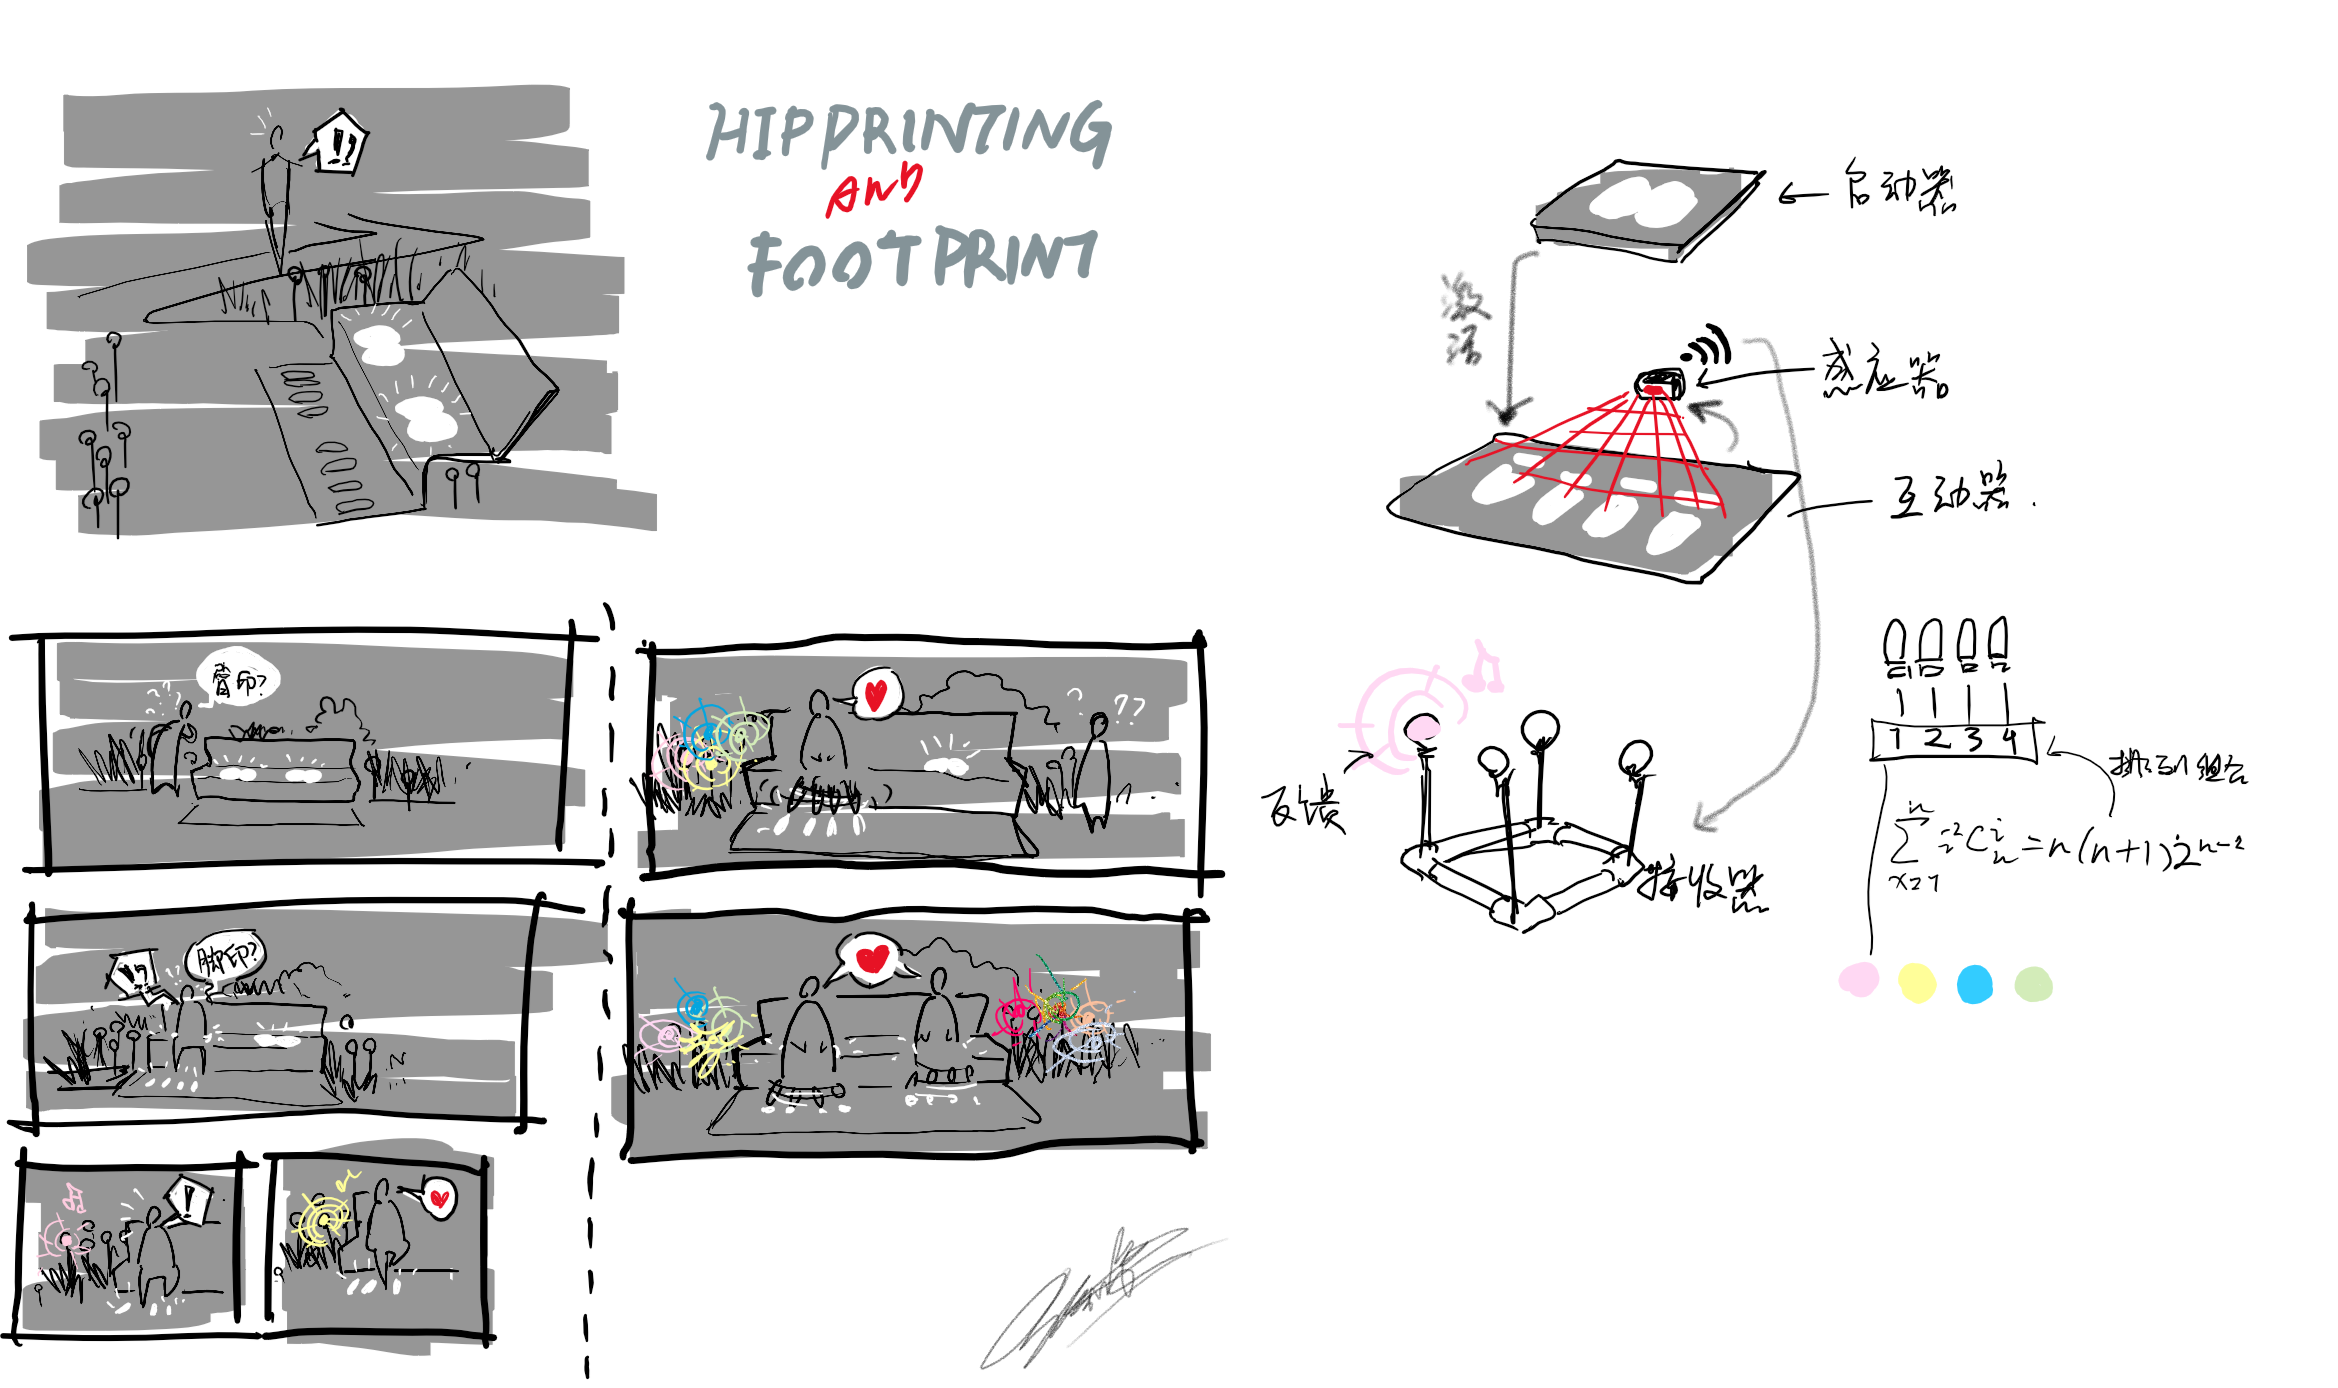 HIPPRINTING
AND
FOOTPRINT
!!
臀印?
? ??
!!
脚印?
!
启动器
激活
感应器
互动器.
反馈
接收器
1 2 3 4
排列组合
= n(n+1)2ⁿ⁻²